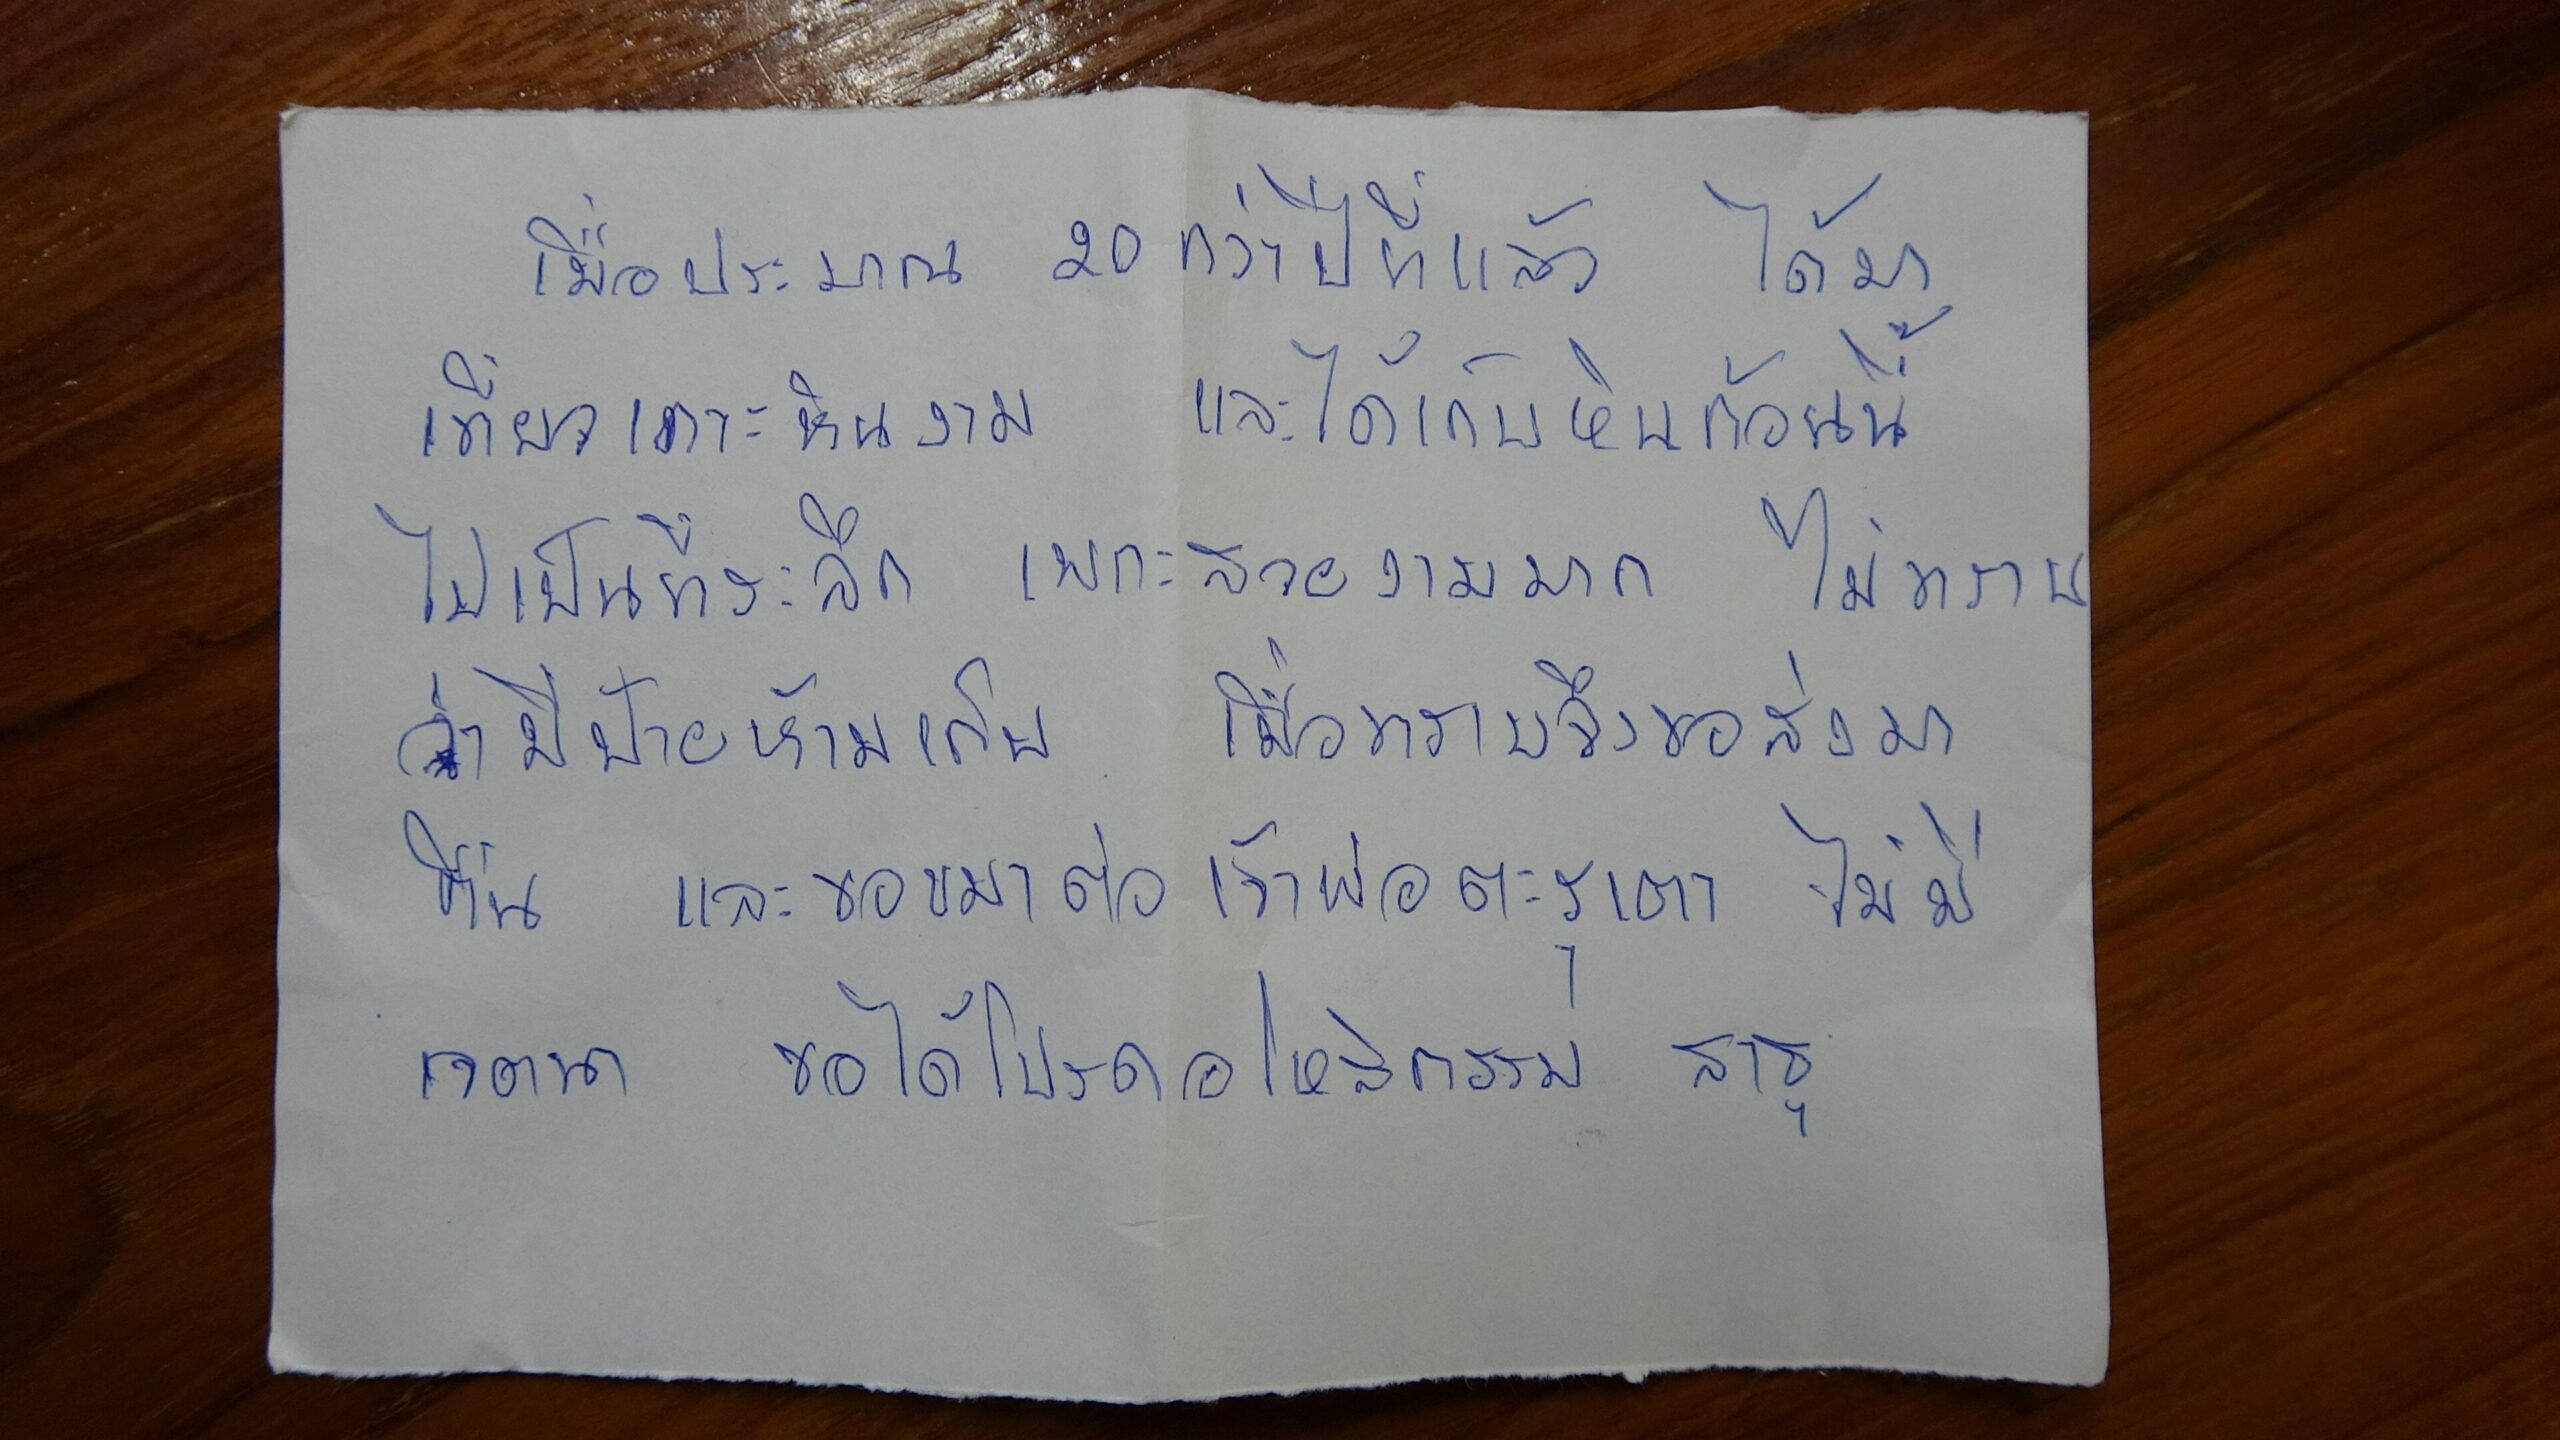 เมื่อประมาณ 20 กว่าปีที่แล้ว ได้มา
เที่ยวเกาะหินงาม และได้เก็บหินก้อนนี้
ไปเป็นที่ระลึก เพราะสวยงามมาก ไม่ทราบ
ว่ามีป้ายห้ามเก็บ เมื่อทราบจึงขอส่งมา
คืน และขอขมาต่อเจ้าพ่อตะรุเตา ไม่มี
เจตนา ขอได้โปรดอโหสิกรรม สาธุ